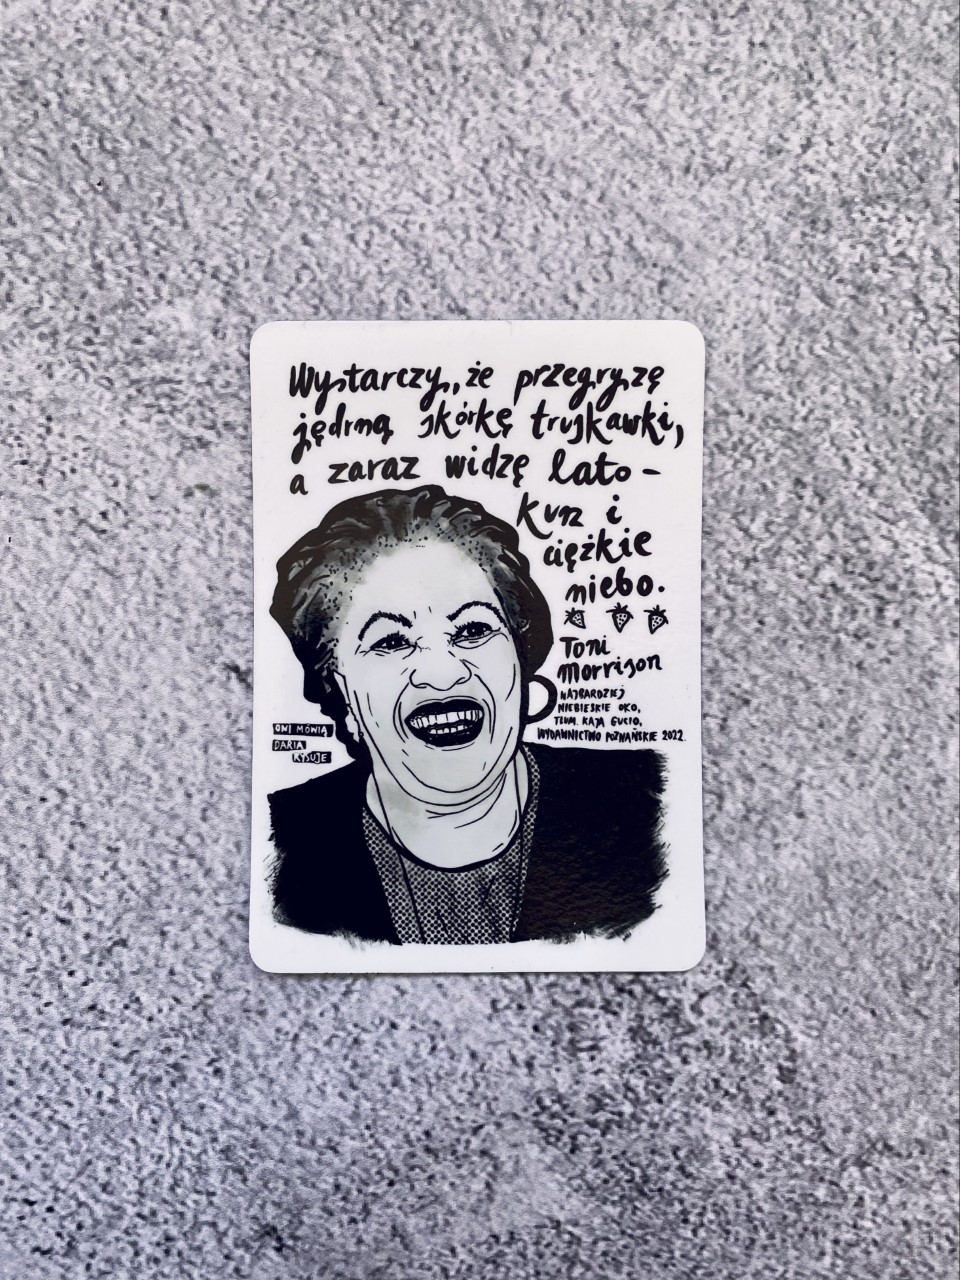 Wystarczy, że przegryzę
jędrną skórkę truskawki,
a zaraz widzę lato -
kurz i
ciężkie
niebo.
Toni
Morrison
NAJBARDZIEJ
NIEBIESKIE OKO,
TŁUM. KAJA GUCIO,
WYDAWNICTWO POZNAŃSKIE 2022.
ONI MÓWIĄ
DARIA
RYSUJE